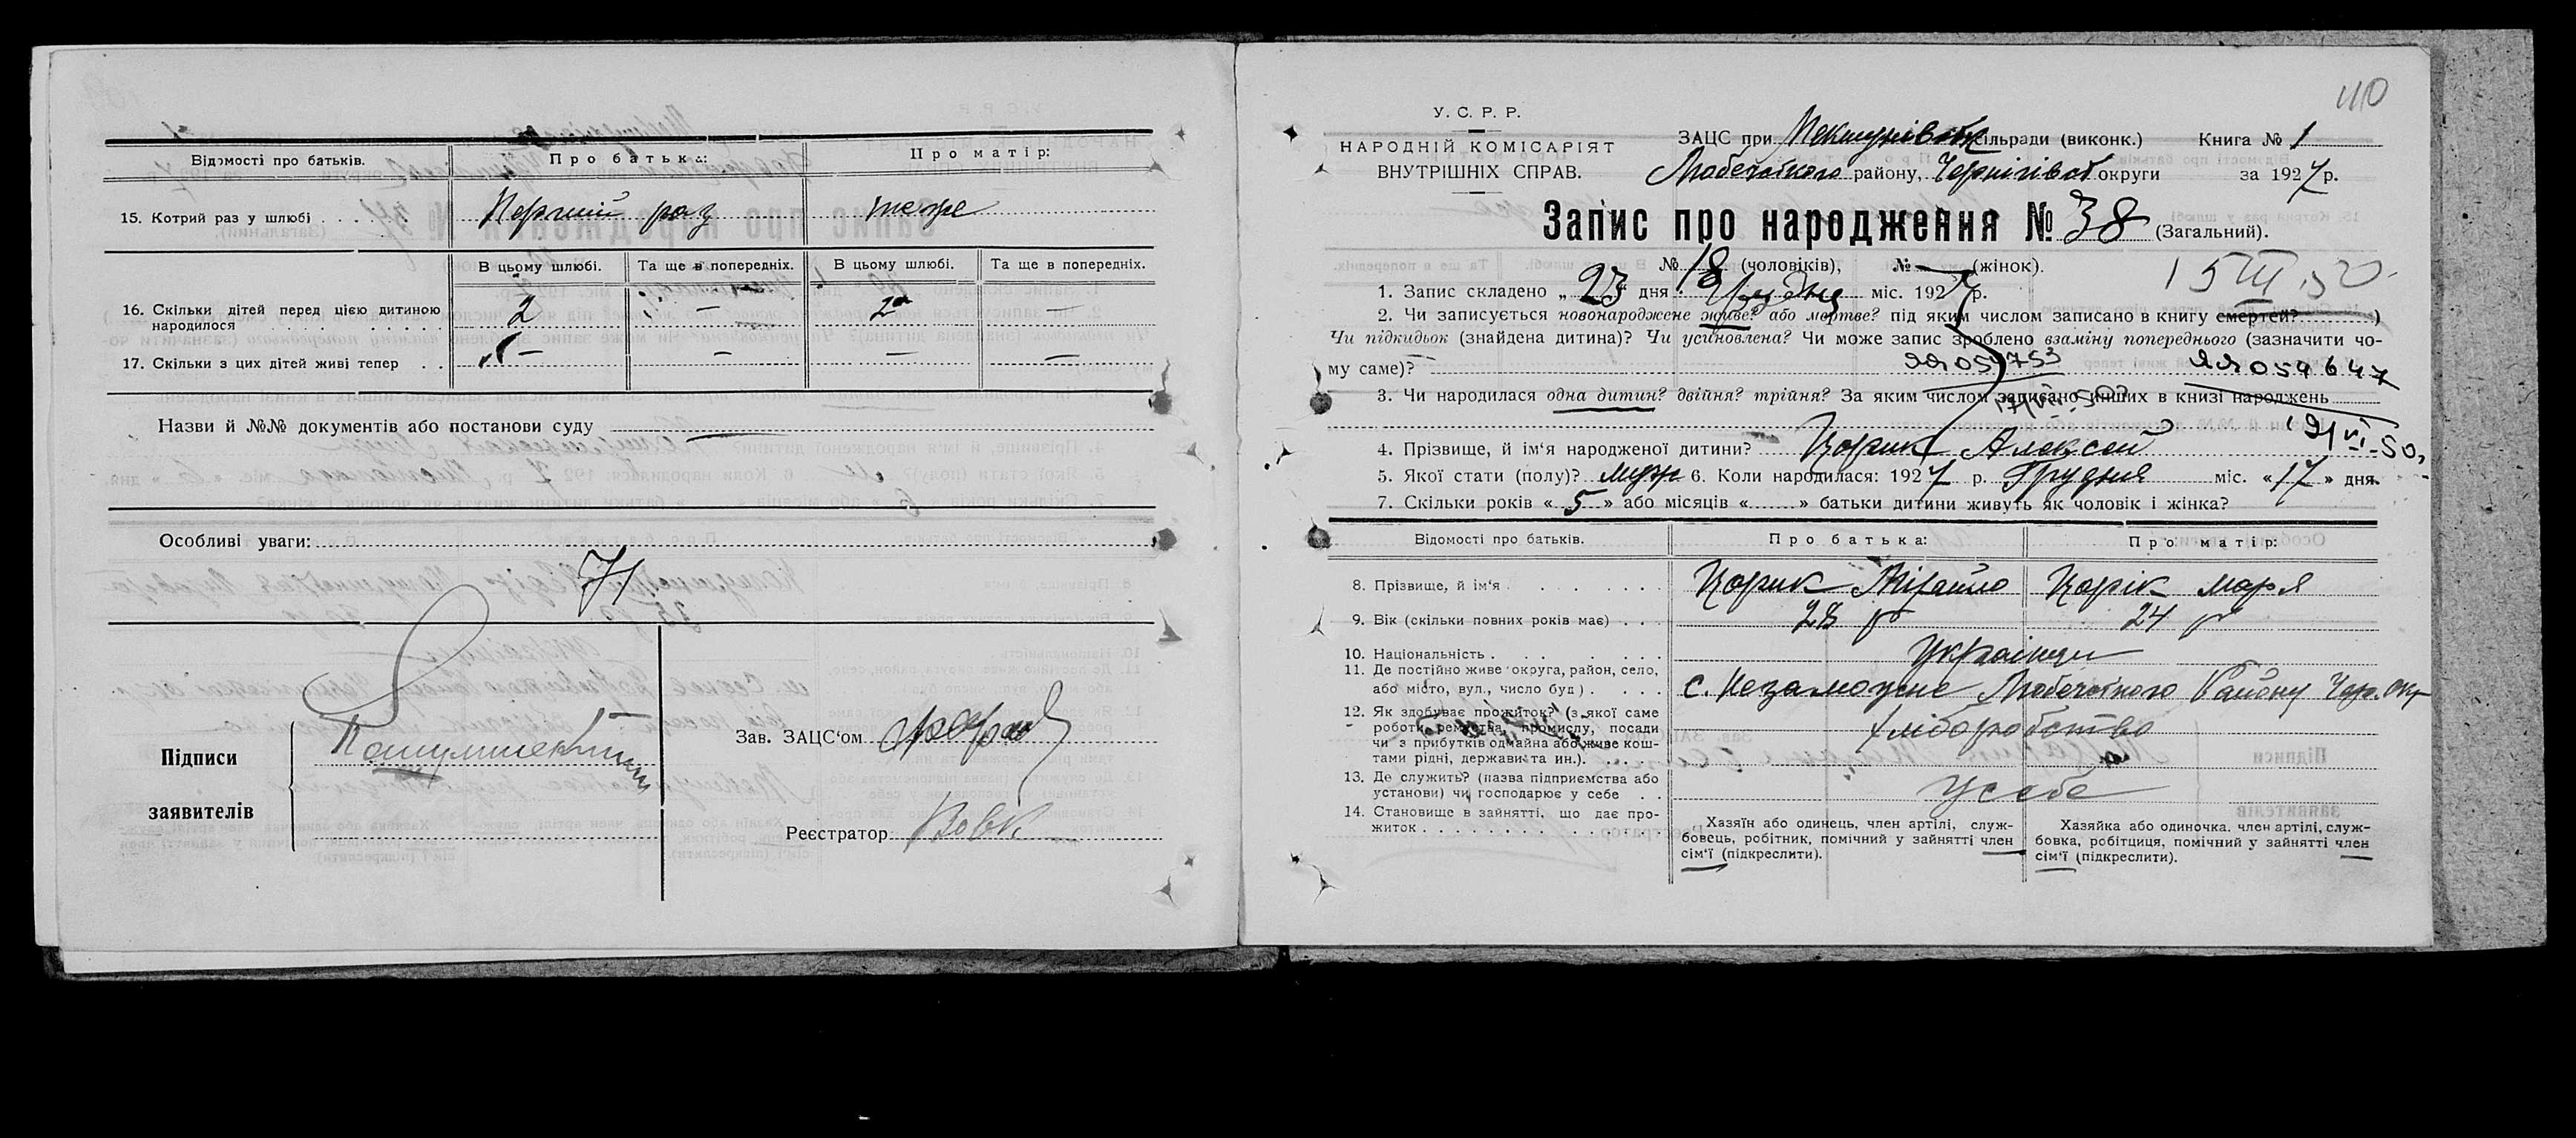 Відомості про батьків. Про батька: Про матір:
15. Котрий раз у шлюбі . . . . . Перший раз теже
В цьому шлюбі. Та ще в попередніх. В цьому шлюбі. Та ще в попередніх.
16. Скільки дітей перед цією дитиною
народилося . . . . . . 2 — 2 —
17. Скільки з цих дітей живі тепер . . — — — —
Назви й №№ документів або постанови суду —
Особливі уваги:
71
Підписи
заявителів
Зав. ЗАЦС‘ом
Реєстратор Вовк
110
У. С. Р. Р.
НАРОДНІЙ КОМІСАРІЯТ
ВНУТРІШНІХ СПРАВ.
ЗАЦС при сільради (виконк.) Книга № 1
Любецького району, Чернігівськ округи за 1927 р.
Запис про народження № 38 (Загальний).
№ 18 (чоловіків), № — (жінок).
15 III 50
1. Запис складено „ 23 “ дня Грудня міс. 1927 р.
2. Чи записується новонароджене живе? або мертве? під яким числом записано в книгу смертей? )
Чи підкидьок (знайдена дитина)? Чи усиновлена? Чи може запис зроблено взаміну попереднього (зазначити чо-
му саме)? — 059753 059647
3. Чи народилася одна дитин? двійня? трійня? За яким числом записано инших в книзі народжень
VI-50
4. Прізвище, й ім‘я народженої дитини? Цорик Алексей
5. Якої стати (полу)? муж 6. Коли народилася: 1927 р. Грудня міс. «17» дня.
7. Скільки років « 5 » або місяців « » батьки дитини живуть як чоловік і жінка?
Відомості про батьків. Про батька: Про матір:
8. Прізвище, й ім‘я . . . . . . Цорик Міхайло Цорік Мар‘я
9. Вік (скільки повних років має) . . . 28 р 24 р
10. Національність . . . . . . Українци
11. Де постійно живе округа, район, село,
або місто, вул., число буд) . . . . с. Незаможне Любечського Району Черн. окр
12. Як здобуває прожиток? (з якої саме
роботи, ремества, промислу, посади
чи з прибутків одмайна або живе кош-
тами рідні, держави та ин.). . . . . хліборобство
13. Де служить? (назва підприємства або
установи) чи господарює у себе . . У себе
14. Становище в зайнятті, що дає про-
житок . . . . . . . . . . . .
Хазяїн або одинець, член артілі, служ-
бовець, робітник, помічний у зайнятті член
сім‘ї (підкреслити).
Хазяйка або одиночка. член артілі, служ-
бовка, робітциця, помічний у зайнятті член
сім‘ї (підкреслити).